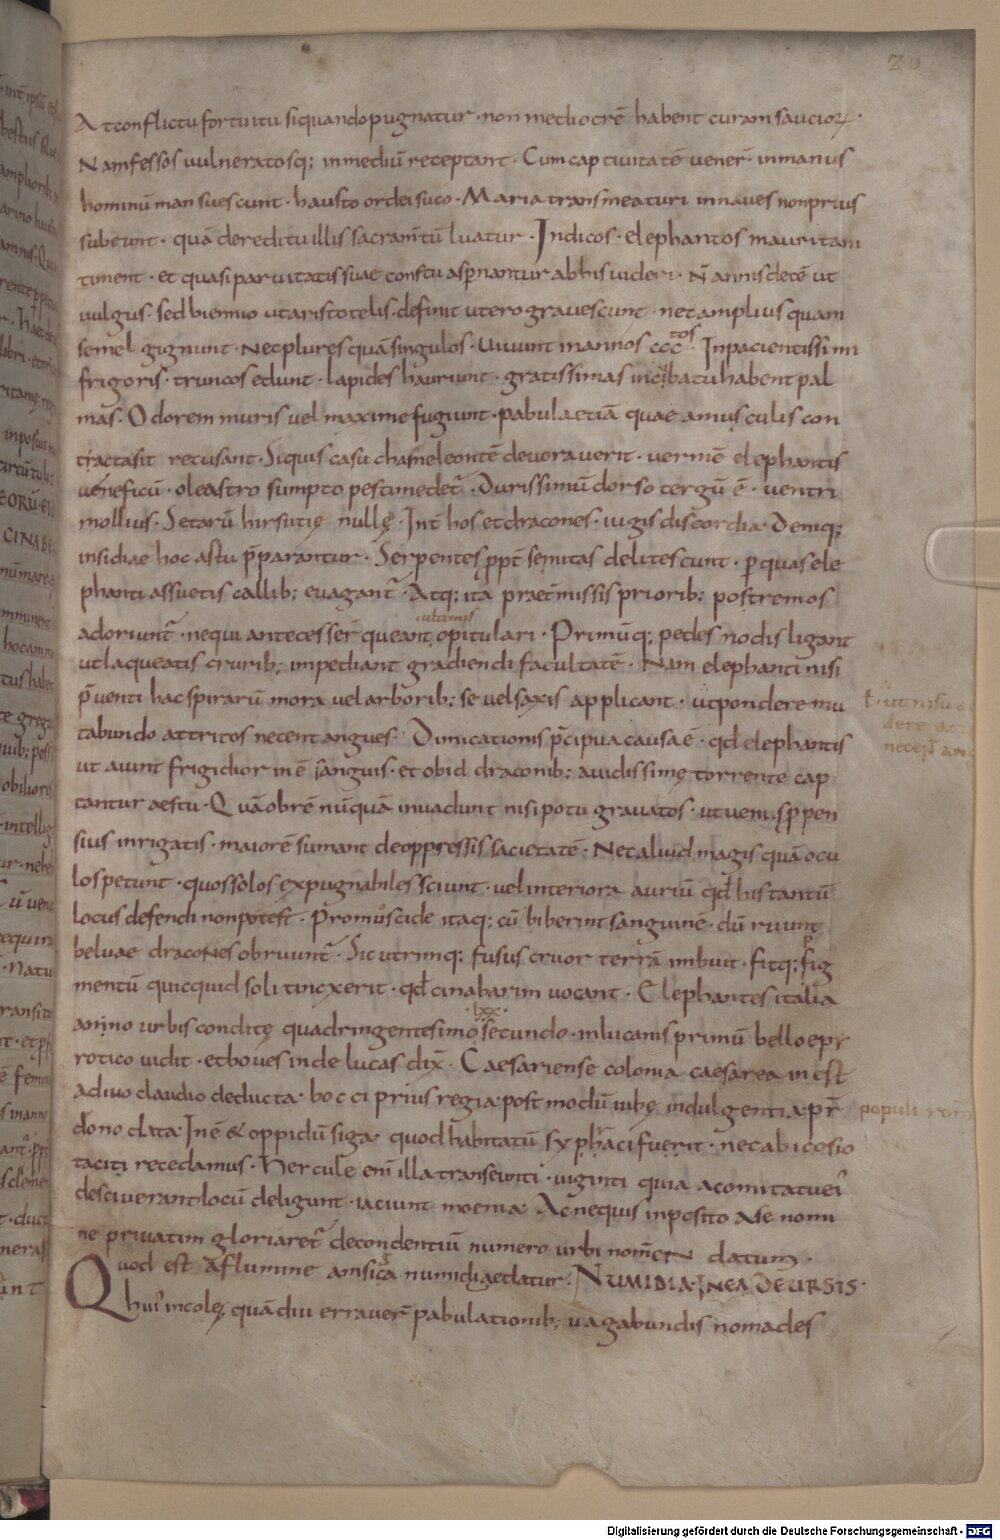 20
At conflictu fortuitu siquando pugnatur · non mediocrē habent curam saucioꝝ ·
Nam fessos vulneratosq; in mediū receptant · Cum captivitatē vener̄ · in manus
hominū mansuescunt · hausto ordei suco · Maria transmeaturi in naves non prius
subeunt · quā de reditu illis sacram̄tū luatur · Indicos · elephantos mauritani
timent · et quasi parvitatis suae conscii aspnantur ab his videri · N̄ annis decē ut
vulgus · sed biennio ut aristotelis · definit utero gravescunt · nec amplius quam
semel gignunt · Nec plures quā singulos · Vivunt in annos ccc tos · Inpacientissimi
frigoris · truncos edunt · lapides hauriunt · gratissimas in cibatu habent pal
mas · Odorem muris vel maxime fugiunt · pabula etiā quae a musculis con
tractasit recusant · Siquis casu chameleontē devoraverit · vermē elephantis
veneficū · oleastro sumpto pesti medet̄ · Durissimū dorso tergū ē · ventri
mollius · Setarū hirsutię nullę · Int̄ hos et dracones · iugis discordia · Deniq;
insidiae hoc astu p̄parantur · Serpentes ꝓpt̄ semitas delitescunt · ꝑ quas ele
phanti assuetis callib; evagant̄ · Atq; ita praet̄missis priorib; postremos
ultimis
adoriunt̄ · ne qui antecesser̄ queant opitulari · Primūq; pedes nodis ligant
ut laqueatis crurib; impediant gradiendi facultatē · Nam elephanti nisi
p̄venti hac spirarū mora vel arborib; se vel saxis applicant · ut pondere mu
tabundo attritos necent angues · Dimicationis p̄cipua causa ē · qđ elephantis
ut aiunt frigidior inē sanguis · et ob id draconib; avidissimę torrente cap
tantur aestu · Quāobrē nūquā invadunt nisi potu gravatos · ut venis ꝓpen
sius inrigatis · maiorē sumant de oppressis sacietatē · Nec aliud magis quā ocu
los petunt · quos solos expugnabiles sciunt · vel interiora auriū qđ his tantū
locus defendi non potest · Promuscide itaq; cū biberint sanguinē · dū ruunt
beluae dracones obruunt̄ · Sic utrimq; fusus cruor terrā imbuit · fitq; pig
mentū quicquid soli tincxerit · qđ cinabarim vocant · Elephantes italia
lxx
anno urbis conditę quadringentesimo secundo · in lucanis primū bello epy
rotico vidit · et boves inde lucas dix̄ · Caesariense colonia caesarea inest
a divo claudio deducta · bocci prius regia · post modū iubę indulgentia · pr̄
populi rom
dono data · Inē & oppidū siga · quod habitatū syphaci fuerit · nec ab icosio
taciti recedamus · Hercule eni illa transeunti · viginti qui a comitatu ei'
desciverant locū deligunt · iaciunt moenia · Ac nequis inposito a se nomi
ne privatim gloriaret̄ de condentiū numero urbi nomen datum ·
Quod est a flumine amsica numidiae datur · NUMIDIA · IN EA DE URSIS ·
hui' incolę, quādiu erraver̄ pabulationib; vagabundis nomades